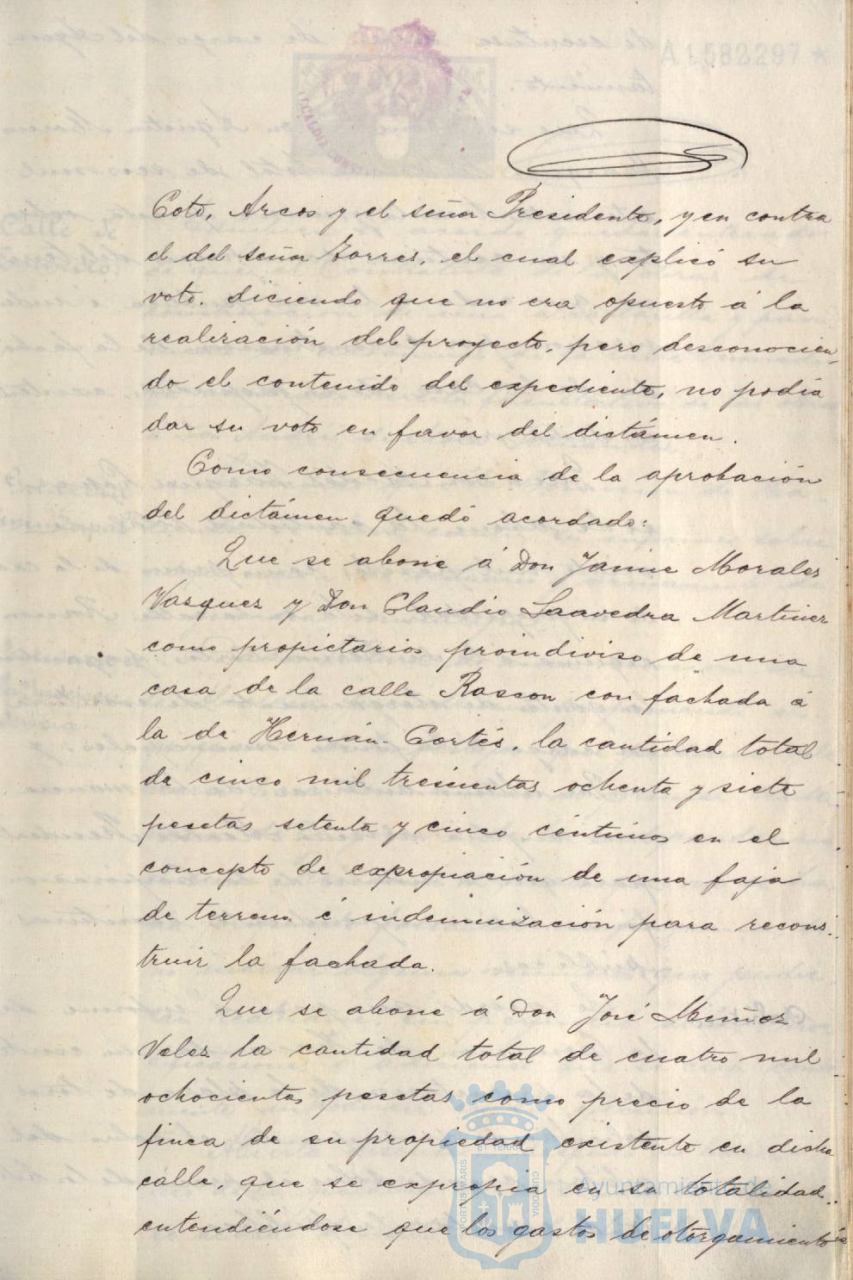 A1582297*
Coto, Arcos y el señor Presidente, y en contra
el del señor Torres, el cual explicó su
voto, diciendo que no era opuesto á la
realización del proyecto, pero desconocien-
do el contenido del expediente, no podía
dar su voto en favor del dictámen.
Como consecuencia de la aprobación
del dictámen quedó acordado:
Que se abone á Don Jaime Morales
Vasquez y Don Claudio Saavedra Martinez
como propictarios proindiviso de una
casa de la calle Rascon con fachada á
la de Hernán-Cortés, la cantidad total
de cinco mil trescientas ochenta y siete
pesetas setenta y cinco céntimos en el
concepto de expropiación de una faja
de terreno é indemnización para recons-
truir la fachada.
Que se abone á Don José Muñoz
Velez la cantidad total de cuatro mil
ochocientas pesetas como precio de la
finca de su propiedad existente en dicha
calle, que se expropia en su totalidad,
entendiéndose que los gastos de otorgamiento
Ayuntamiento de
HUELVA